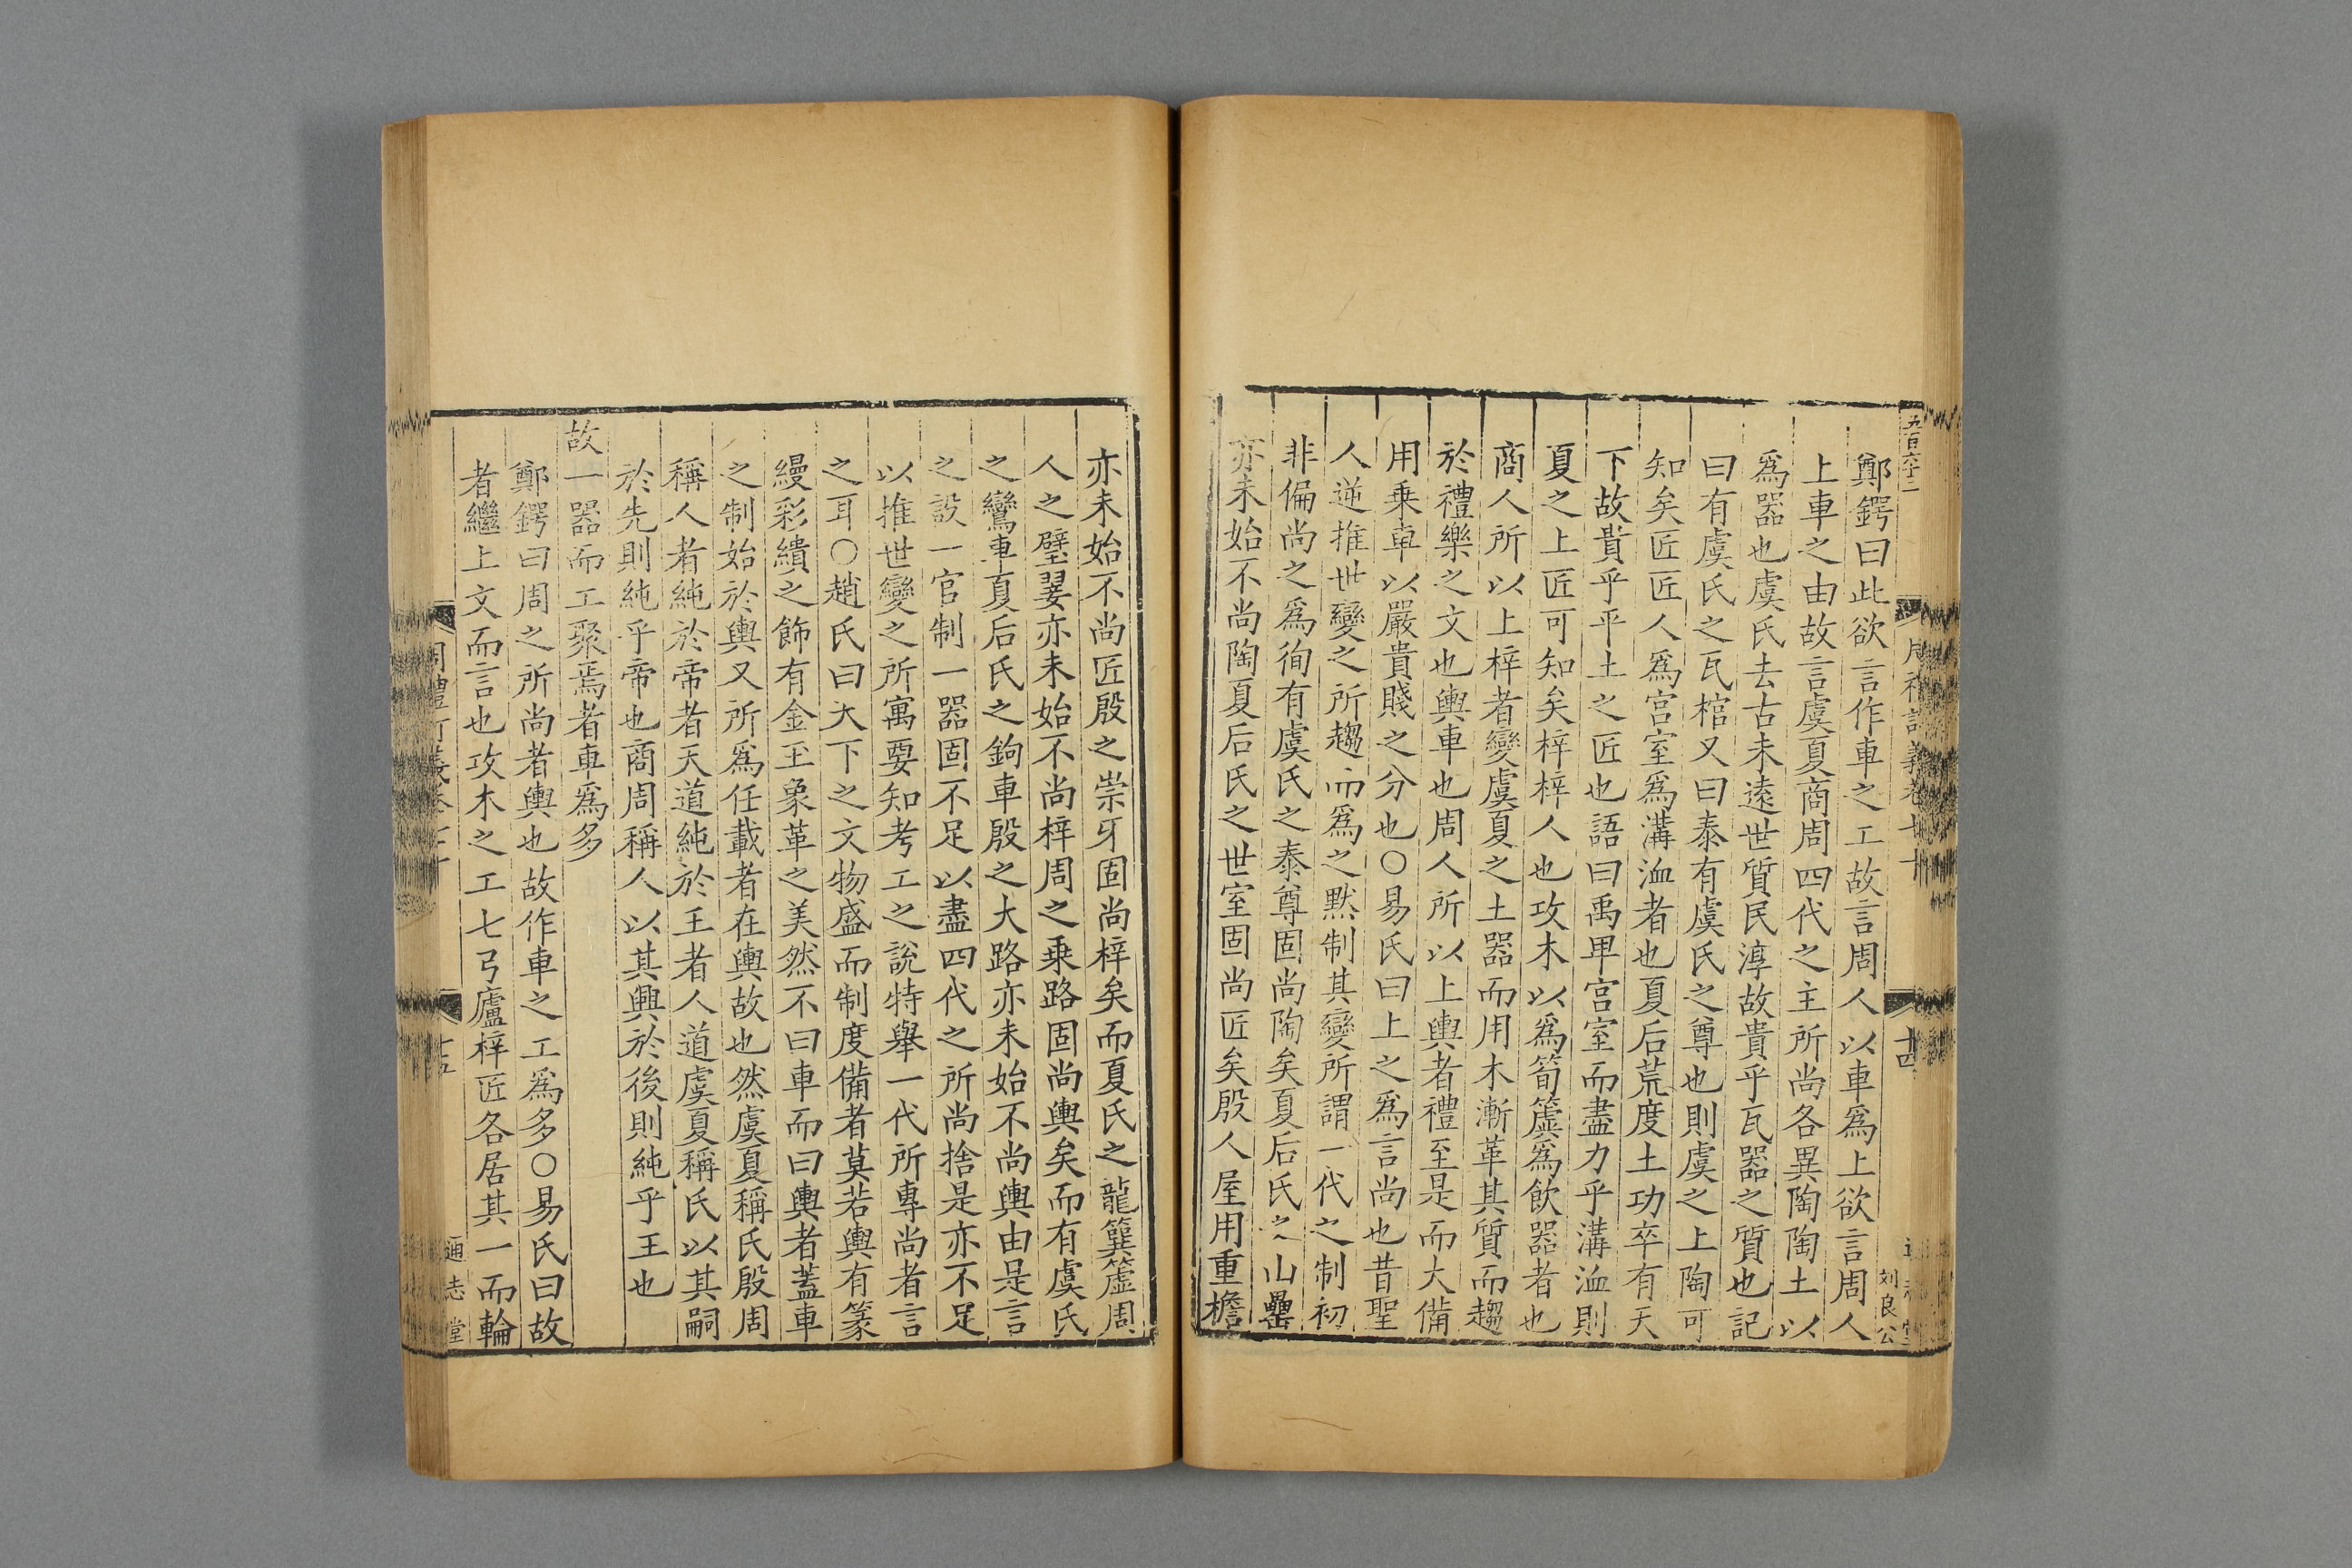 五百六十二
鄭鍔曰此欲言作車之工故言周人以車爲上欲言周人
上車之由故言虞夏商周四代之主所尚各異陶陶土以
爲器也虞氏去古未遠世質民淳故貴乎瓦器之質也記
曰有虞氏之瓦棺又曰泰有虞氏之尊也則虞之上陶可
知矣匠匠人爲宮室爲溝洫者也夏后荒度土功卒有天
下故貴乎平土之匠也語曰禹卑宮室而盡力乎溝洫則
夏之上匠可知矣梓梓人也攻木以爲筍簴爲飲器者也
商人所以上梓者變虞夏之土器而用木漸革其質而趨
於禮樂之文也輿車也周人所以上輿者禮至是而大備
用乗車以嚴貴賤之分也○易氏曰上之爲言尚也昔聖
人逆推世變之所趨而爲之黙制其變所謂一代之制初
非偏尚之爲徇有虞氏之泰尊固尚陶矣夏后氏之山罍
亦未始不尚陶夏后氏之世室固尚匠矣殷人屋用重檐
十四
刘良公
亦未始不尚匠殷之崇牙固尚梓矣而夏氏之龍簨簴周
人之璧翣亦未始不尚梓周之乗路固尚輿矣而有虞氏
之鸞車夏后氏之鉤車殷之大路亦未始不尚輿由是言
之設一官制一器固不足以盡四代之所尚捨是亦不足
以推世變之所寓要知考工之說特舉一代所專尚者言
之耳○趙氏曰天下之文物盛而制度備者莫若輿有篆
縵彩繢之飾有金玉象革之美然不曰車而曰輿者蓋車
之制始於輿又所爲任載者在輿故也然虞夏稱氏殷周
稱人者純於帝者天道純於王者人道虞夏稱氏以其嗣
於先則純乎帝也商周稱人以其興於後則純乎王也
故一器而工聚焉者車爲多
鄭鍔曰周之所尚者輿也故作車之工爲多○易氏曰故
者繼上文而言也攻木之工七弓廬梓匠各居其一而輪
十五
通志堂